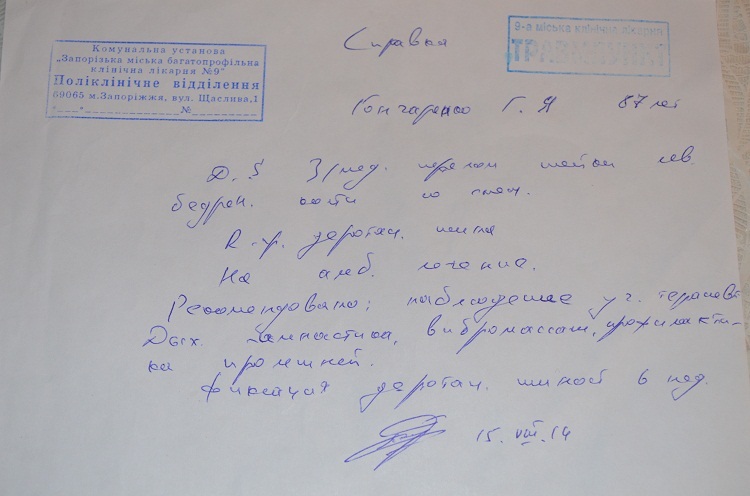 Комунальна установа
„Запорізька міська багатопрофільна
клінічна лікарня №9"
Поліклінічне відділення
69065 м.Запоріжжя, вул. Щаслива,1
"___"________________№________
Справка
9-а міська клінічна лікарня
ТРАВМПУНКТ
Гончаренко Г. Я 87 лет
D. S З/пер. перелом шейки лев.
бедрен. кости со смещ.
R-гр. деротац. шина
На амб. лечение.
Рекомендовано: наблюдение уч. терапевт
Дых. гимнастика, вибромассаж, профилакти-
ка пролежней.
Фиксация деротац. шиной 6 нед.
15. VIII. 14